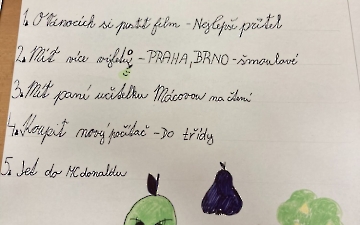 1. O Vánocích si pustit film - Nejlepší přítel
2. Mít více výletů - PRAHA, BRNO - šmoulové
3. Mít paní učitelku Mácovou na čtení
4. Koupit nový počítač - Do třídy
5. Jet do MCdonaldu